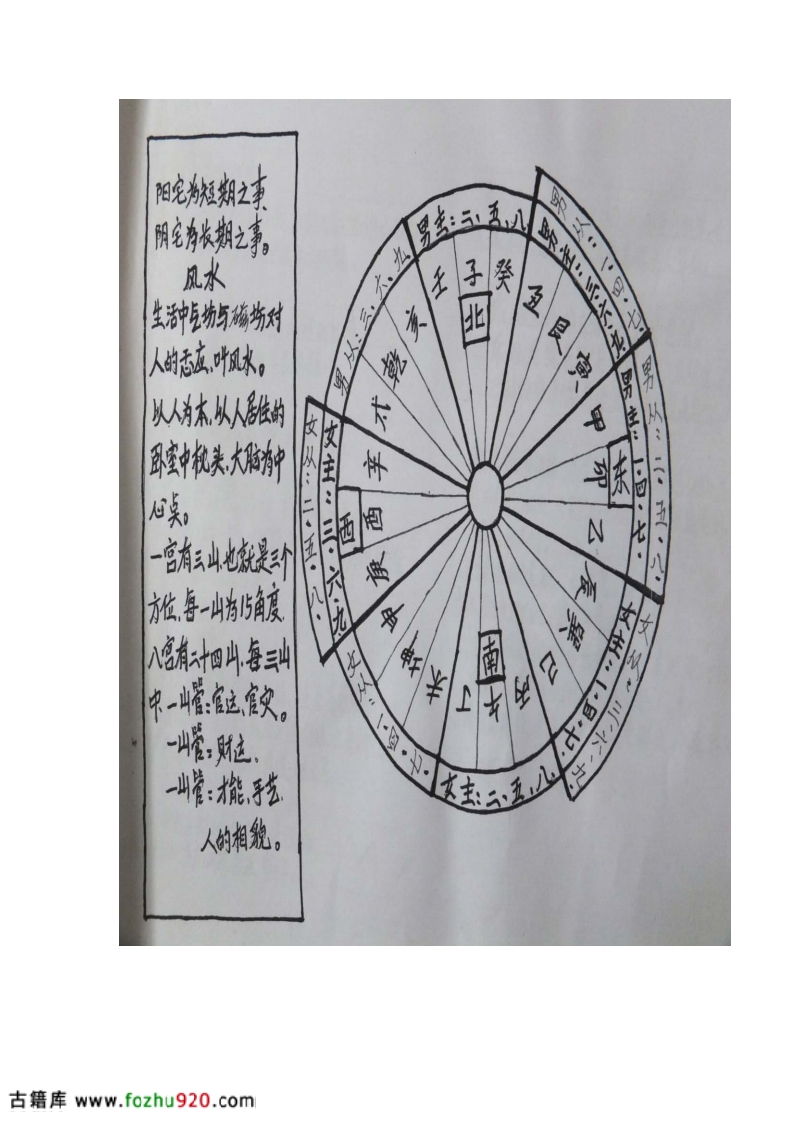 阳宅为短期之事、
阴宅为长期之事。
风水
生活中气场与磁场对
人的感应,叶风水。
以人为本,以人居住的
卧室中枕头、大脑为中
心点。
一宫有三山,也就是三个
方位,每一山为15角度,
八宫有二十四山,每三山
中、一山管:官运、官灾。
一山管:财运、
一山管:才能、手艺、
人的相貌。
男主:二、五、八
男从:一·四·七
男主:三·六·九
男从:二·五·八
男主:一·四·七
女从:三·六·九
女主:一·四·七
女主:二、五、八
女从:一·四·七
女从:二·五·八
女主:三·六·九
男从:三·六·九
壬
子
癸
丑
艮
寅
甲
卯
乙
辰
巽
巳
丙
午
丁
未
坤
申
庚
酉
辛
乾
亥
北
东
南
西
古籍库 www.fozhu920.com